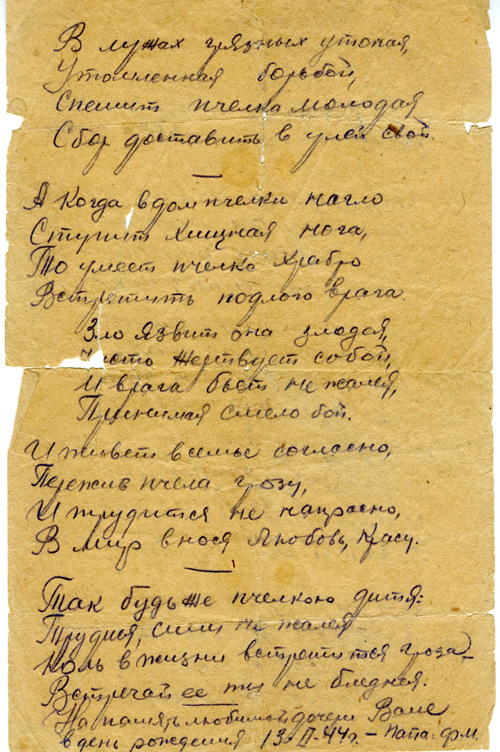 В лужах грязных утопая,
Утомленная борьбой,
Спешит пчелка молодая
Сбор доставить в улей свой.
А когда в дом пчелки нагло
Ступит хищная нога,
То умеет пчелка храбро
Встретить подлого врага.
Зло язвит она злодея,
Часто жертвует собой,
И врага бьет не жалея,
Принимая смело бой.
И живет в семье согласно,
Пережив пчела грозу,
И трудится не напрасно,
В мир внося любовь, красу.
Так будь же пчелкою дитя:
Трудись, силы не жалея
Коль в жизни встретится гроза –
Встречай ее ты не бледнея.
На память любимой дочери Вале
в день рождения 13-II-44г. – Папа. ф.м.